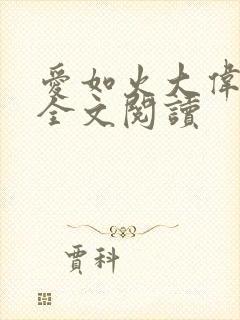 愛如火大偉
全文閱讀
賈科